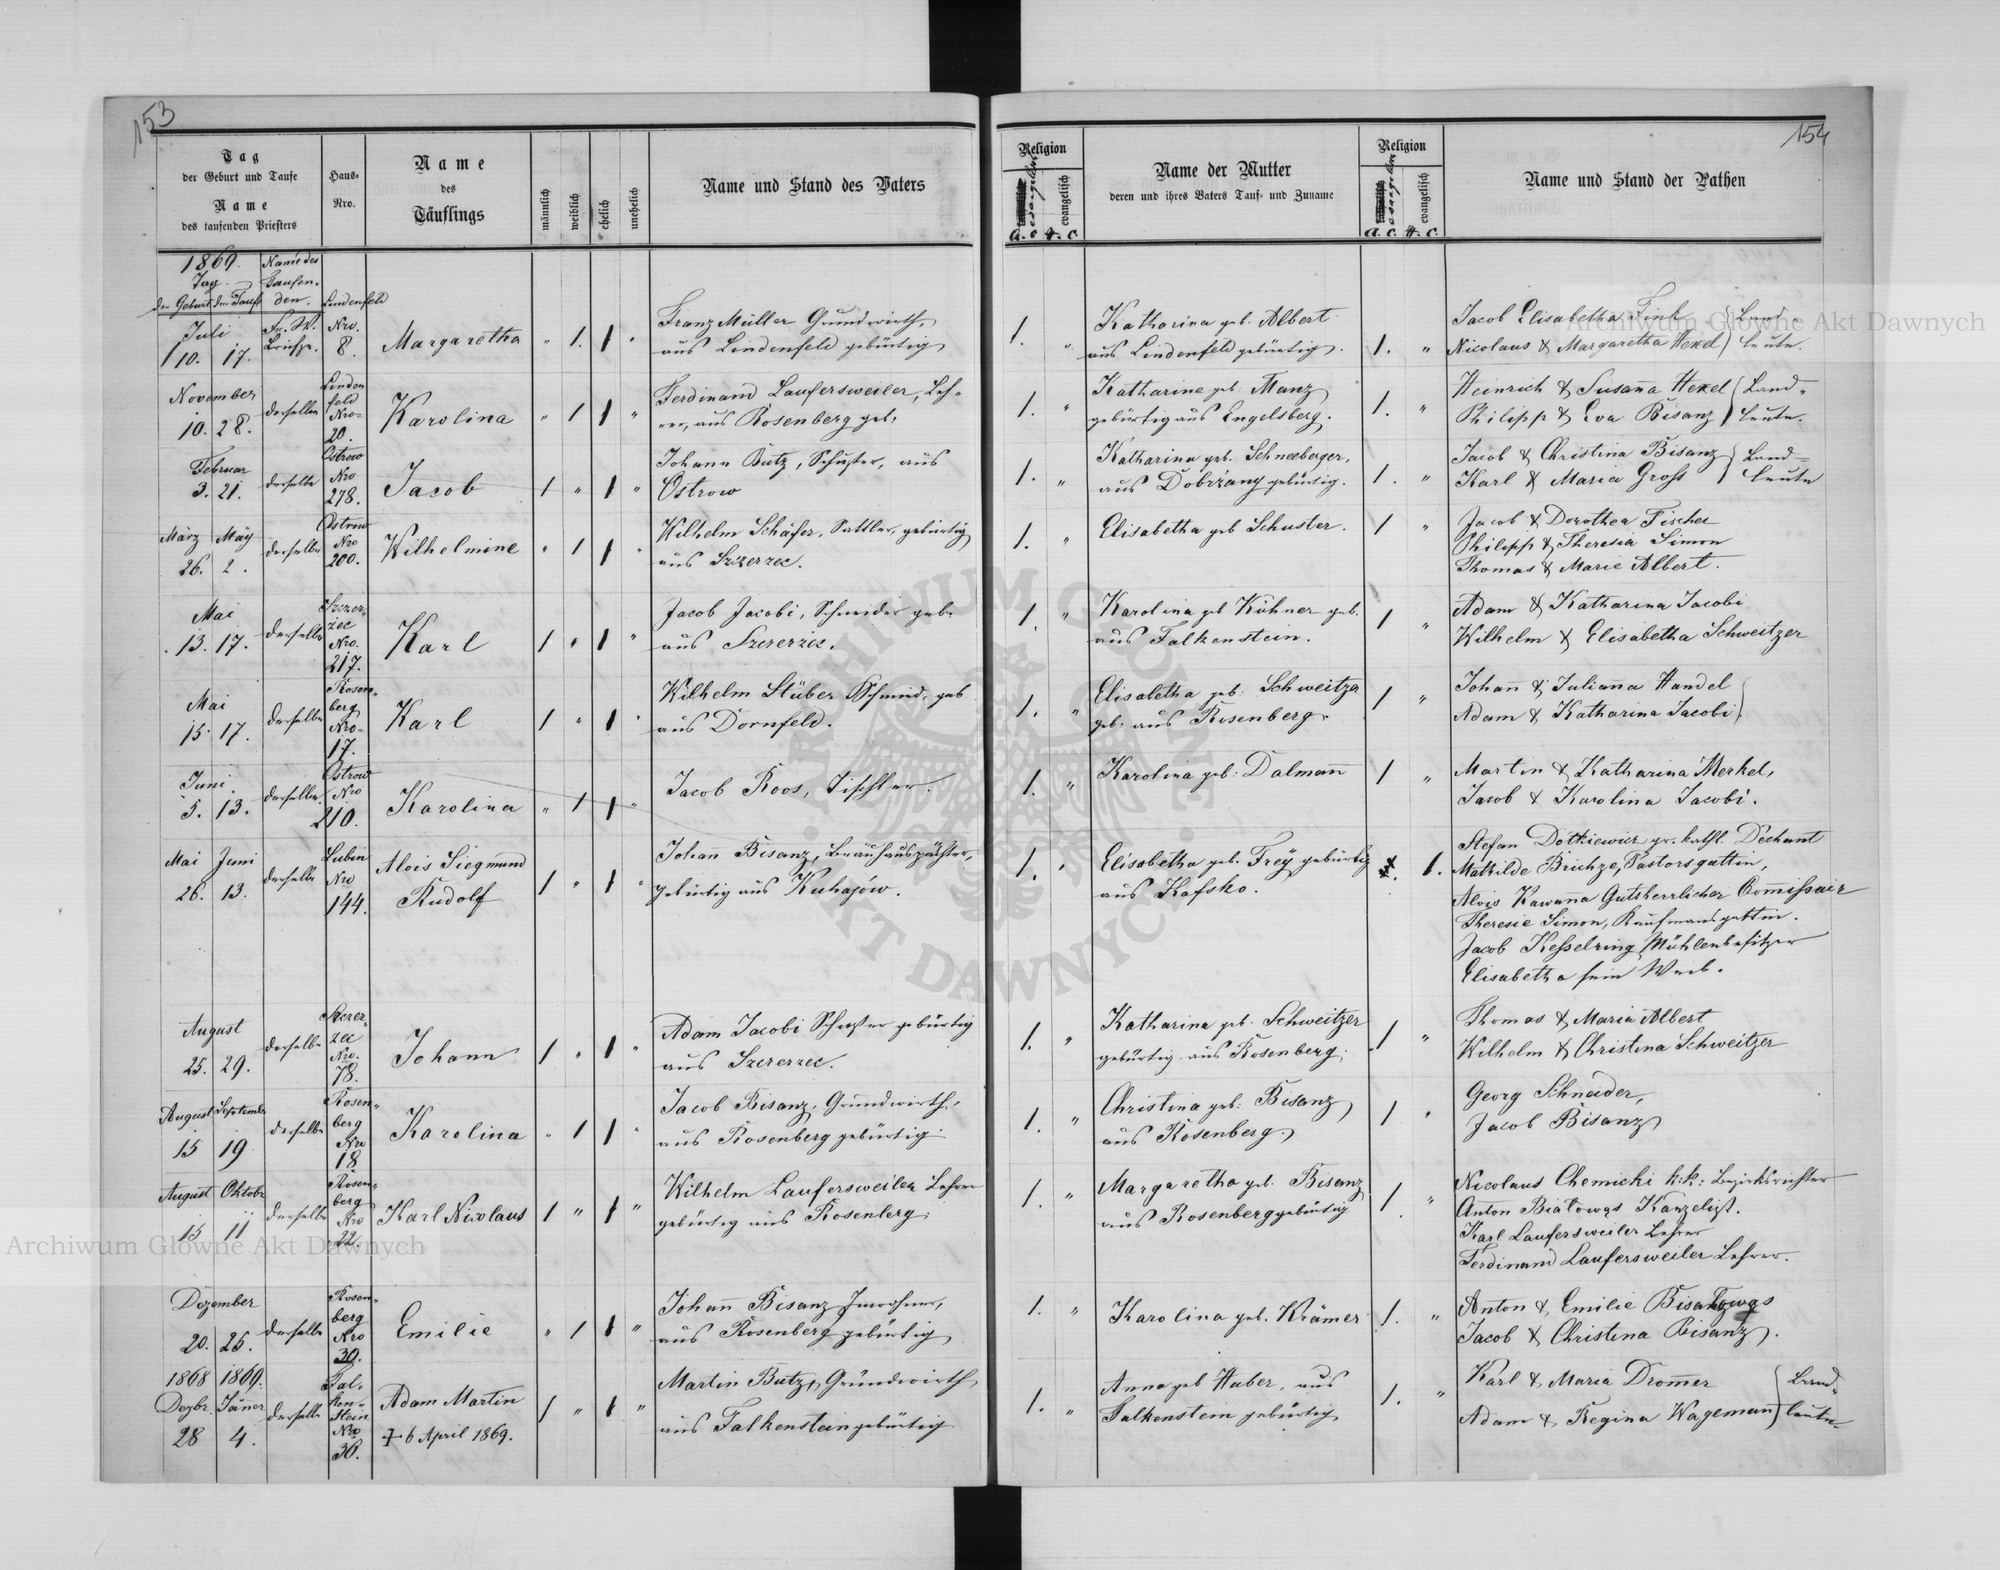 153
Tag
der Geburt und Taufe
Name
des taufenden Priesters
Haus-
Nro.
Name
des
Täuflings
männlich
weiblich
ehelich
unehelich
Name und Stand des Vaters
1869.
Tag
der Geburt der Taufe
Name des
Taufen-
den.
Lindenfeld
Juli
10. 17.
Fr. W.
Nro.
8.
Margaretha
" 1. 1 "
Franz Müller Grundwirth,
aus Lindenfeld gebürtig
November
10. 28.
derselbe
Linden
feld
Nro-
20.
Karolina
" 1 1 "
Ferdinand Laufersweiler, Leh-
rer, aus Rosenberg geb.
Februar
3. 21.
derselbe
Ostrow
Nro
278.
Jacob
1 " 1 "
Johann Butz, Schuster, aus
Ostrow
März May
26. 2.
derselbe
Ostrow
Nro
200.
Wilhelmine
" 1 1 "
Wilhelm Schäfer, Sattler, gebürtig
aus Szczerzec.
Mai
13. 17.
derselbe
Szczer-
zec
Nro.
217.
Karl
1 " 1 "
Jacob Jacobi, Schneider geb.
aus Szczerzec.
Mai
15. 17.
derselbe
Rosen-
berg
Nro-
17.
Karl
1 " 1 "
Wilhelm Stüber Schmied, geb.
aus Dornfeld.
Juni
5. 13.
derselbe
Ostrow
Nro
210.
Karolina
" 1 1 "
Jacob Roos, Tischler.
Mai Juni
26. 13.
derselbe
Lubin
Nro
144.
Alois Siegmund
Rudolf
1 " 1 "
Johann Bisanz, Bräuhauspächter,
gebürtig aus Kuhajów.
August
25. 29.
derselbe
Szczer-
zec
Nro.
78.
Johann
1 " 1 "
Adam Jacobi Schuster gebürtig
aus Szczerzec.
August September
15 19
derselbe
Rosen-
berg
Nro
18.
Karolina
" 1 1 "
Jacob Bisanz, Grundwirth,
aus Rosenberg gebürtig.
August Oktobr
15 11
derselbe
Rosen-
berg
Nro
22.
Karl Nicolaus
1 " 1 "
Wilhelm Laufersweiler Lehrer
gebürtig aus Rosenberg.
Dezember
20. 25.
derselbe
Rosen-
berg
Nro
30.
Emilie
" 1 1 "
Johann Bisanz Inwohner,
aus Rosenberg gebürtig
1868 1869.
Dezbr. Jäner
28 4.
derselbe
Fal-
ken-
stein
Nro
36.
Adam Martin
† 6 April 1869.
1 " 1 "
Martin Butz, Grundwirth
aus Falkenstein gebürtig
154
Religion
evangelisch
evangelisch
A. C. H. C.
Name der Mutter
deren und ihres Vaters Tauf- und Zuname
Religion
evangelisch
evangelisch
A. C. H. C.
Name und Stand der Pathen
1. "
Katharina geb. Albert
aus Lindenfeld gebürtig.
1. "
Jacob Elisabetha Fink
Nicolaus & Margaretha Hexel
Land-
leute.
1. "
Katharine geb. Manz
gebürtig aus Engelsberg.
1. "
Heinrich & Susanna Hexel
Philipp & Eva Bisanz
Land-
leute.
1. "
Katharina geb. Schneeberger,
aus Dobrzany gebürtig.
1. "
Jacob & Christina Bisanz
Karl & Maria Gross
Land-
leute
1. "
Elisabetha geb Schuster.
1 "
Jacob & Dorothea Fischer
Philipp & Theresia Simon
Thomas & Marie Albert.
1. "
Karolina geb Kühner geb.
aus Falkenstein.
1 "
Adam & Katharina Jacobi
Wilhelm & Elisabetha Schweitzer
1. "
Elisabetha geb. Schweitzer
geb. aus Rosenberg.
1 "
Johann & Julianna Handel
Adam & Katharina Jacobi
1. "
Karolina geb: Dalmann
1 "
Martin & Katharina Merkel,
Jacob & Karolina Jacobi.
1. "
Elisabetha geb. Frey gebürtig
aus Kafsko.
1.
Stefan Dotkiewicz gr. kathl. Dechant
Mathilde Brichze, Pastorsgattin,
Alois Kawanna Gutsherrlicher Commissair
Theresie Simon, Kaufmansgattin.
Jacob Kesselring Mühlenbesitzer
Elisabetha sein Weib.
1. "
Katharina geb. Schweitzer
gebürtig aus Rosenberg.
1 "
Thomas & Maria Albert
Wilhelm & Christina Schweitzer
1. "
Christina geb: Bisanz
aus Rosenberg.
1 "
Georg Schneider,
Jacob Bisanz
1. "
Margaretha geb. Bisanz
aus Rosenberg gebürtig
1 "
Nicolaus Chemicki k: k: Bezirksrichter
Anton Białowąs Kanzelist.
Karl Laufersweiler Lehrer
Ferdinand Laufersweiler Lehrer.
1. "
Karolina geb. Krämer
1. "
Anton & Emilie
Jacob & Christina Bisanz.
1. "
Anna geb Huber, aus
Falkenstein gebürtig
1. "
Karl & Maria Dromer
Adam & Regina Wageman
Land-
leute
Archiwum Główne Akt Dawnych
Archiwum Główne Akt Dawnych
ARCHIWUM GŁÓWNE AKT DAWNYCH